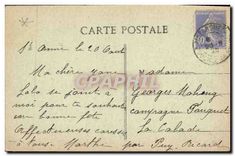 CARTE POSTALE
St Aimé le 20 Aout
Ma chère
Lola se joint à
moi pour te souhaiter
une bonne fête
Affectueuses caresses
à tous. Marthe
Madame
Georges
campagne Fouquet
La Calade
par Puy-Ricard